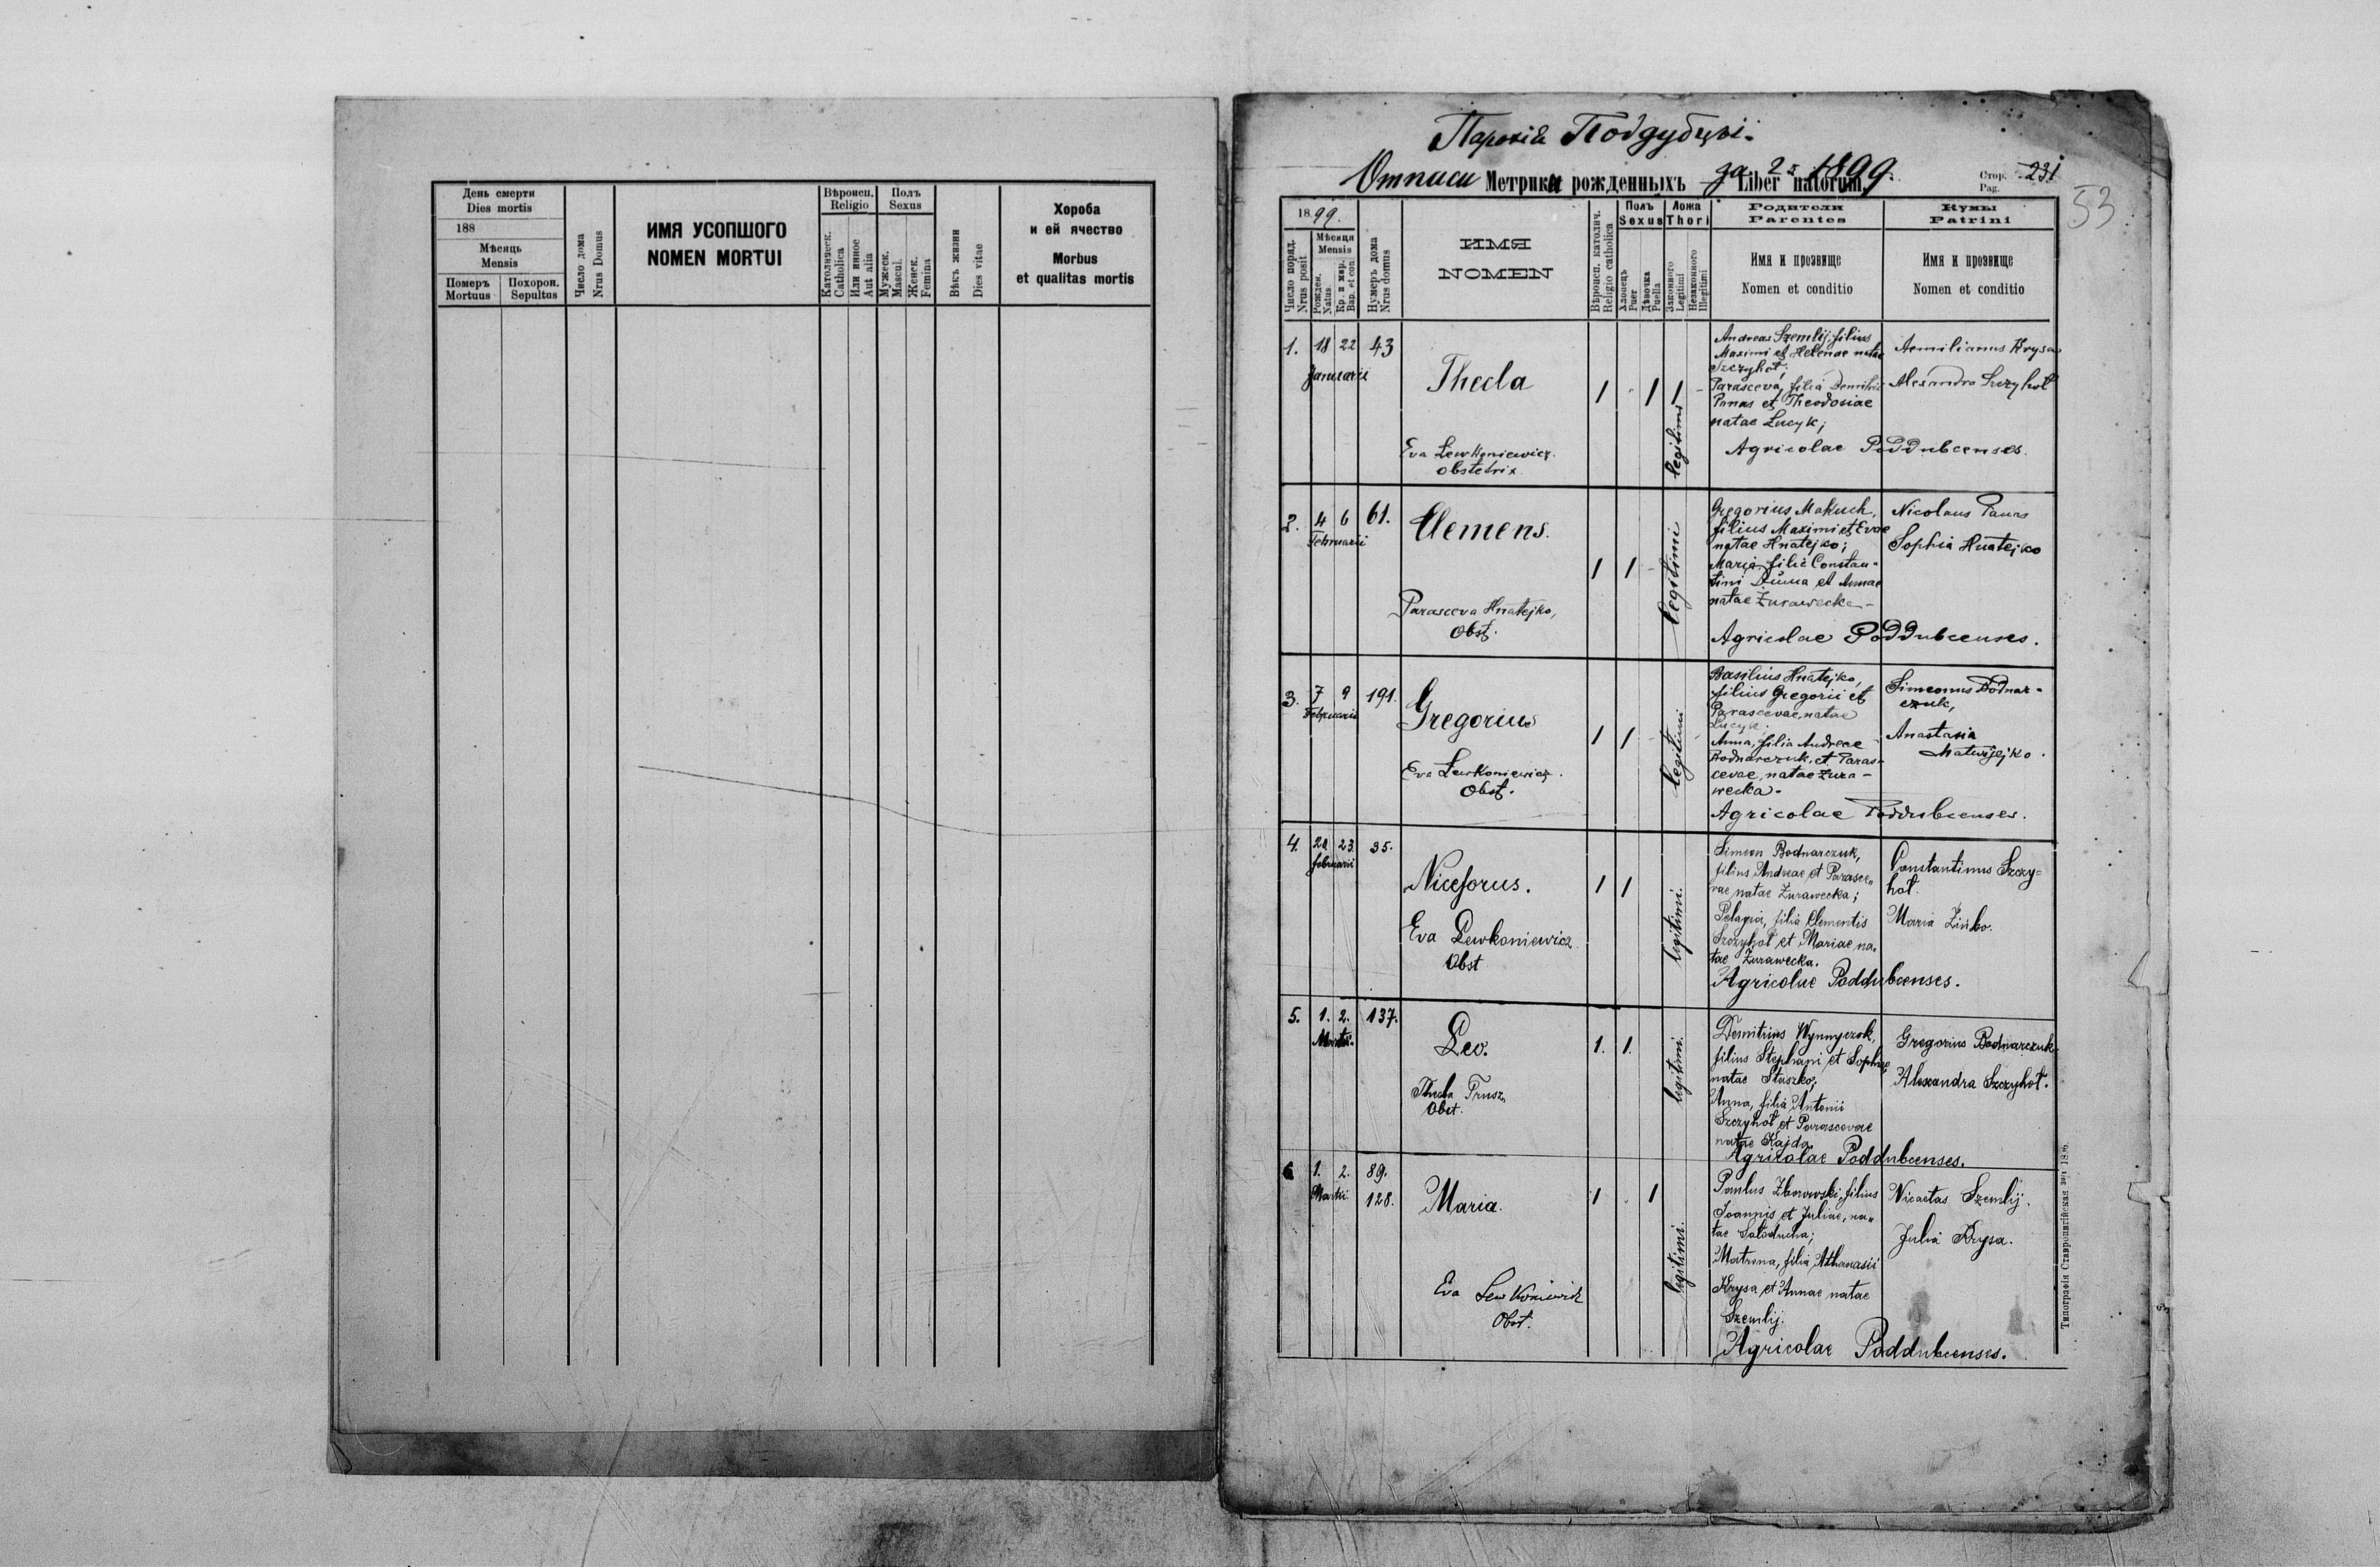 День смерти
Dies mortis
188
Мѣсяць
Mensis
Померъ
Mortuus
Похорон.
Sepultus
Число дома
Nrus Domus
ИМЯ УСОПШОГО
NOMEN MORTUI
Вѣроисп.
Religio
Католическ.
Catholica
Или инное
Aut alia
Полъ
Sexus
Мужеск.
Mascul.
Женск.
Femina
Вѣкъ жизни
Dies vitae
Хороба
и ей ячество
Morbus
et qualitas mortis
Парохія Поддубцѣ.
Отписи Метрики рожденныхъ за Liber natorum 1899.
Стор.
Pag. 231
53
1899.
Число поряд.
Nrus posit
Мѣсяця
Mensis
Рожден.
Natus
Кр. и мир.
Bap. et con
Нумеръ дома
Nrus domus
ИМЯ
NOMEN
Вѣроисп. католич.
Religio catholica
Полъ
Sexus
Хлопець
Puer
Дѣвочка
Puella
Ложа
Thori
Законного
Legitimi
Незаконного
Illegitimi
Родители
Parentes
Имя и прозвище
Nomen et conditio
Кумы
Patrini
Имя и прозвище
Nomen et conditio
1. 18 22 43
Januarii
Thecla
Eva Lewkoniewicz
obstetrix.
1 - 1 1 -
legitimi
Andreas Szemlij, filius
Maximi et Helenae natae
Szczyhoł;
Parasceva, filia Demitrii
Panas et Theodosiae
natae Lucyk;
Agricolae Poddubcenses.
Aemilianus Krysa
Alexandra Szczyhoł
2. 4 6 61.
Februarii
Clemens.
Parasceva Hnatejko,
Obst.
1 1 -
legitimi
Gregorius Makuch,
filius Maximi et Evae
natae Hnatejko;
Maria, filia Constan-
tini Duma et Annae
natae Żurawecka -
Agricolae Poddubcenses.
Nicolaus Panas
Sophia Hnatejko
3. 7 9 191.
Februarii
Gregorius
Eva Lewkoniewicz.
Obst.
1 1 -
legitimi
Basilius Hnatejko,
filius Gregorii et
Parascevae, natae
Lucyk.
Anna, filia Andreae
Bodnarczuk, et Paras-
cevae, natae Żura-
wecka.
Agricolae Poddubcenses.
Simeonus Bodnar-
czuk,
Anastasia
Matwijejko.
4. 23. 35.
februarii
Niceforus.
Eva Lewkoniewicz
Obst
1 1
legitimi.
Simeon Bodnarczuk,
filius Andreae et Parasce-
vae natae Żurawecka;
Pelagia, filia Clementis
Szczyhoł et Mariae na-
tae Żurawecka.
Agricolae Poddubcenses.
Constantinus Szczy-
hoł.
Maria Zińko.
5. 1. 2. 137.
Martii.
Leo.
Thecla Trusz
Obst.
1. 1.
legitimi.
Demitrius Wynnyczok,
filius Stephani et Sophiae,
natae Staszko;
Anna, filia Antonii
Szczyhoł et Parascevae
natae Kajda
Agricolae Poddubcenses.
Gregorius Bodnarczuk.
Alexandra Szczyhoł.
6 1. 2. 89.
Martii 128.
Maria.
Eva Lewkoniewicz
Obst.
1 . 1
legitimi.
Paulus Zborowski, filius
Joannis et Juliae, na-
tae Sałoducha;
Matrona, filia Athanasii
Krysa et Annae natae
Szemlij.
Agricolae Poddubcenses.
Nicaetas Szemlij.
Julia Krysa.
Типографія Ставропигійская